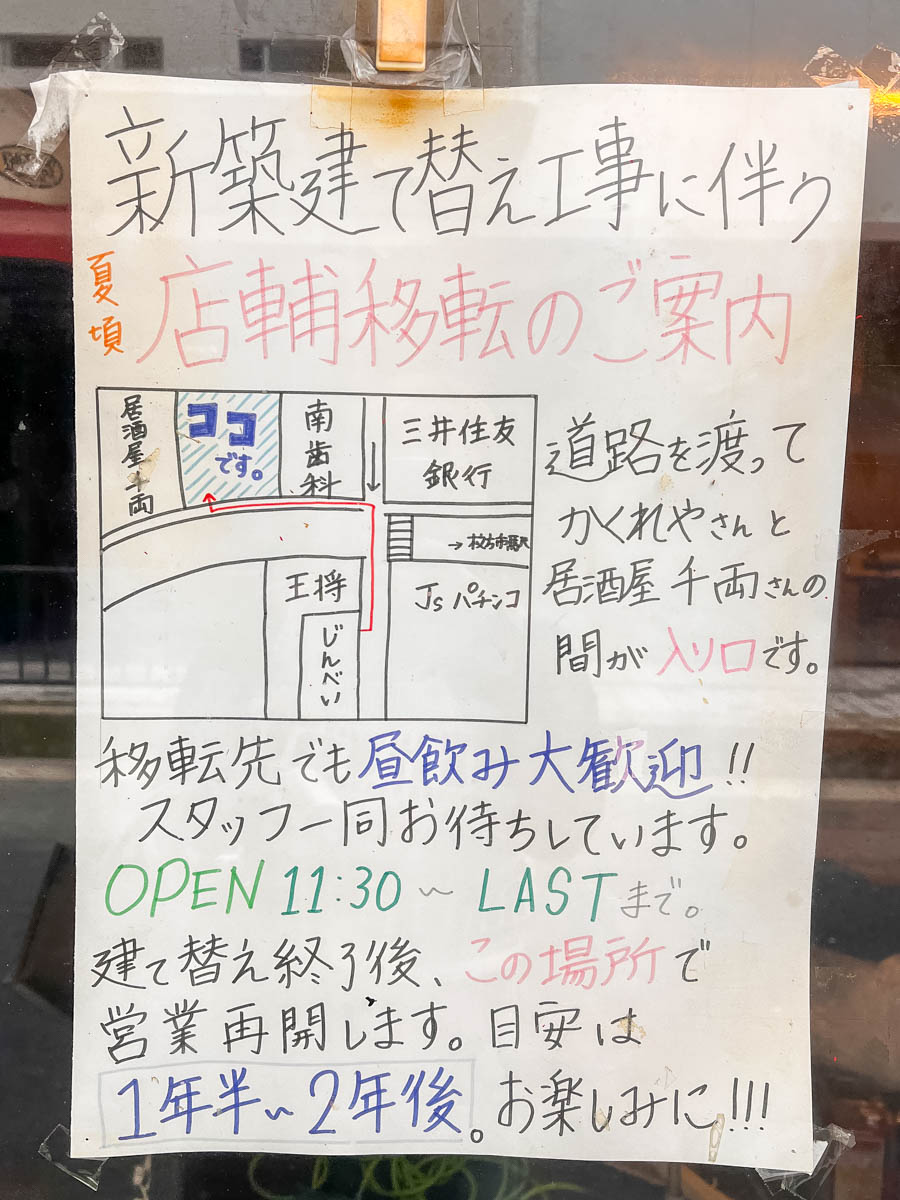 新築建て替え工事に伴う
夏頃
店輔移転のご案内
居酒屋千両
ココ
です。
南歯科
三井住友
銀行
→枚方市駅
王将
じんべい
Js パチンコ
道路を渡って
かくれやさんと
居酒屋千両さんの
間が入り口です。
移転先でも昼飲み大歓迎!!
スタッフ一同お待ちしています。
OPEN 11:30~LASTまで。
建て替え終了後、この場所で
営業再開します。目安は
1年半~2年後。お楽しみに!!!